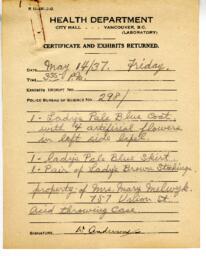 HEALTH DEPARTMENT
CITY HALL .... VANCOUVER, B.C.
(LABORATORY)
CERTIFICATE AND EXHIBITS RETURNED.
DATE May 14/37. Friday.
TIME 3:35 PM.
EXHIBITS RECEIPT NO.
POLICE BUREAU OF SCIENCE NO. 2981
1 - Lady's Pale Blue Coat
with 4 artificial flowers
in left side lapel
1 - lady's Pale Blue Skirt
1 - Pair of Lady's Brown Stockings
property of Mrs. Mary
787 Union St
Acid throwing Case
SIGNATURE